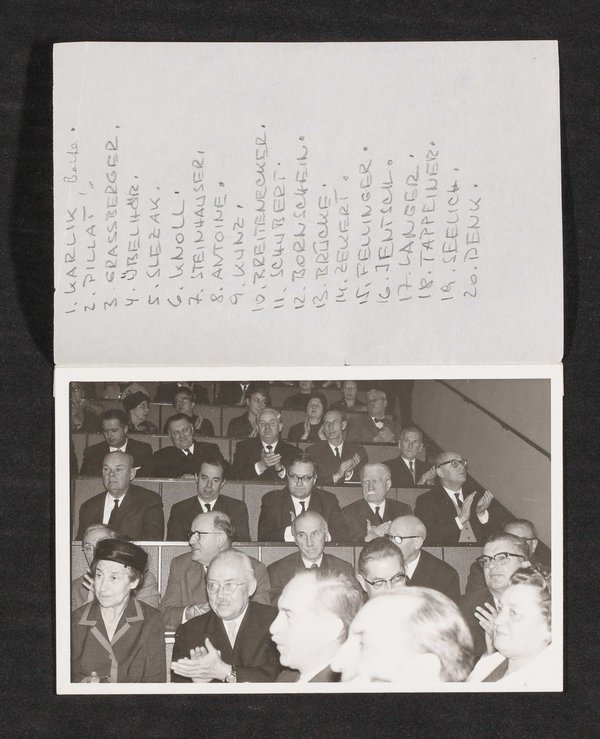 1. KARLIK Berta.
2. PILLAT!
3. GRASSBERGER.
4. ÜBELHÖR.
5. SLEZAK.
6. KNOLL.
7. STEINHAUSER.
8. ANTOINE.
9. KUNZ.
10. BREITENECKER.
11. SCHUBERT.
12. BORNSCHEIN.
13. BRÜCKE.
14. ZEKERT.
15. FELLINGER.
16. JENTSCH.
17. LANGER.
18. TAPPEINER.
19. SEELICH.
20. DENK.